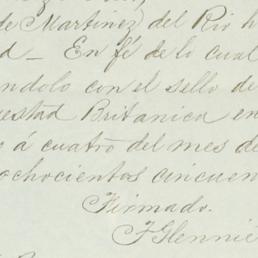 de Martinez del Rio h
d_ En fé de lo cual
ándolo con el sello de
estad Britanica en
o á cuatro del mes de
ochocientos cincuen
Firmado.
F Glennie